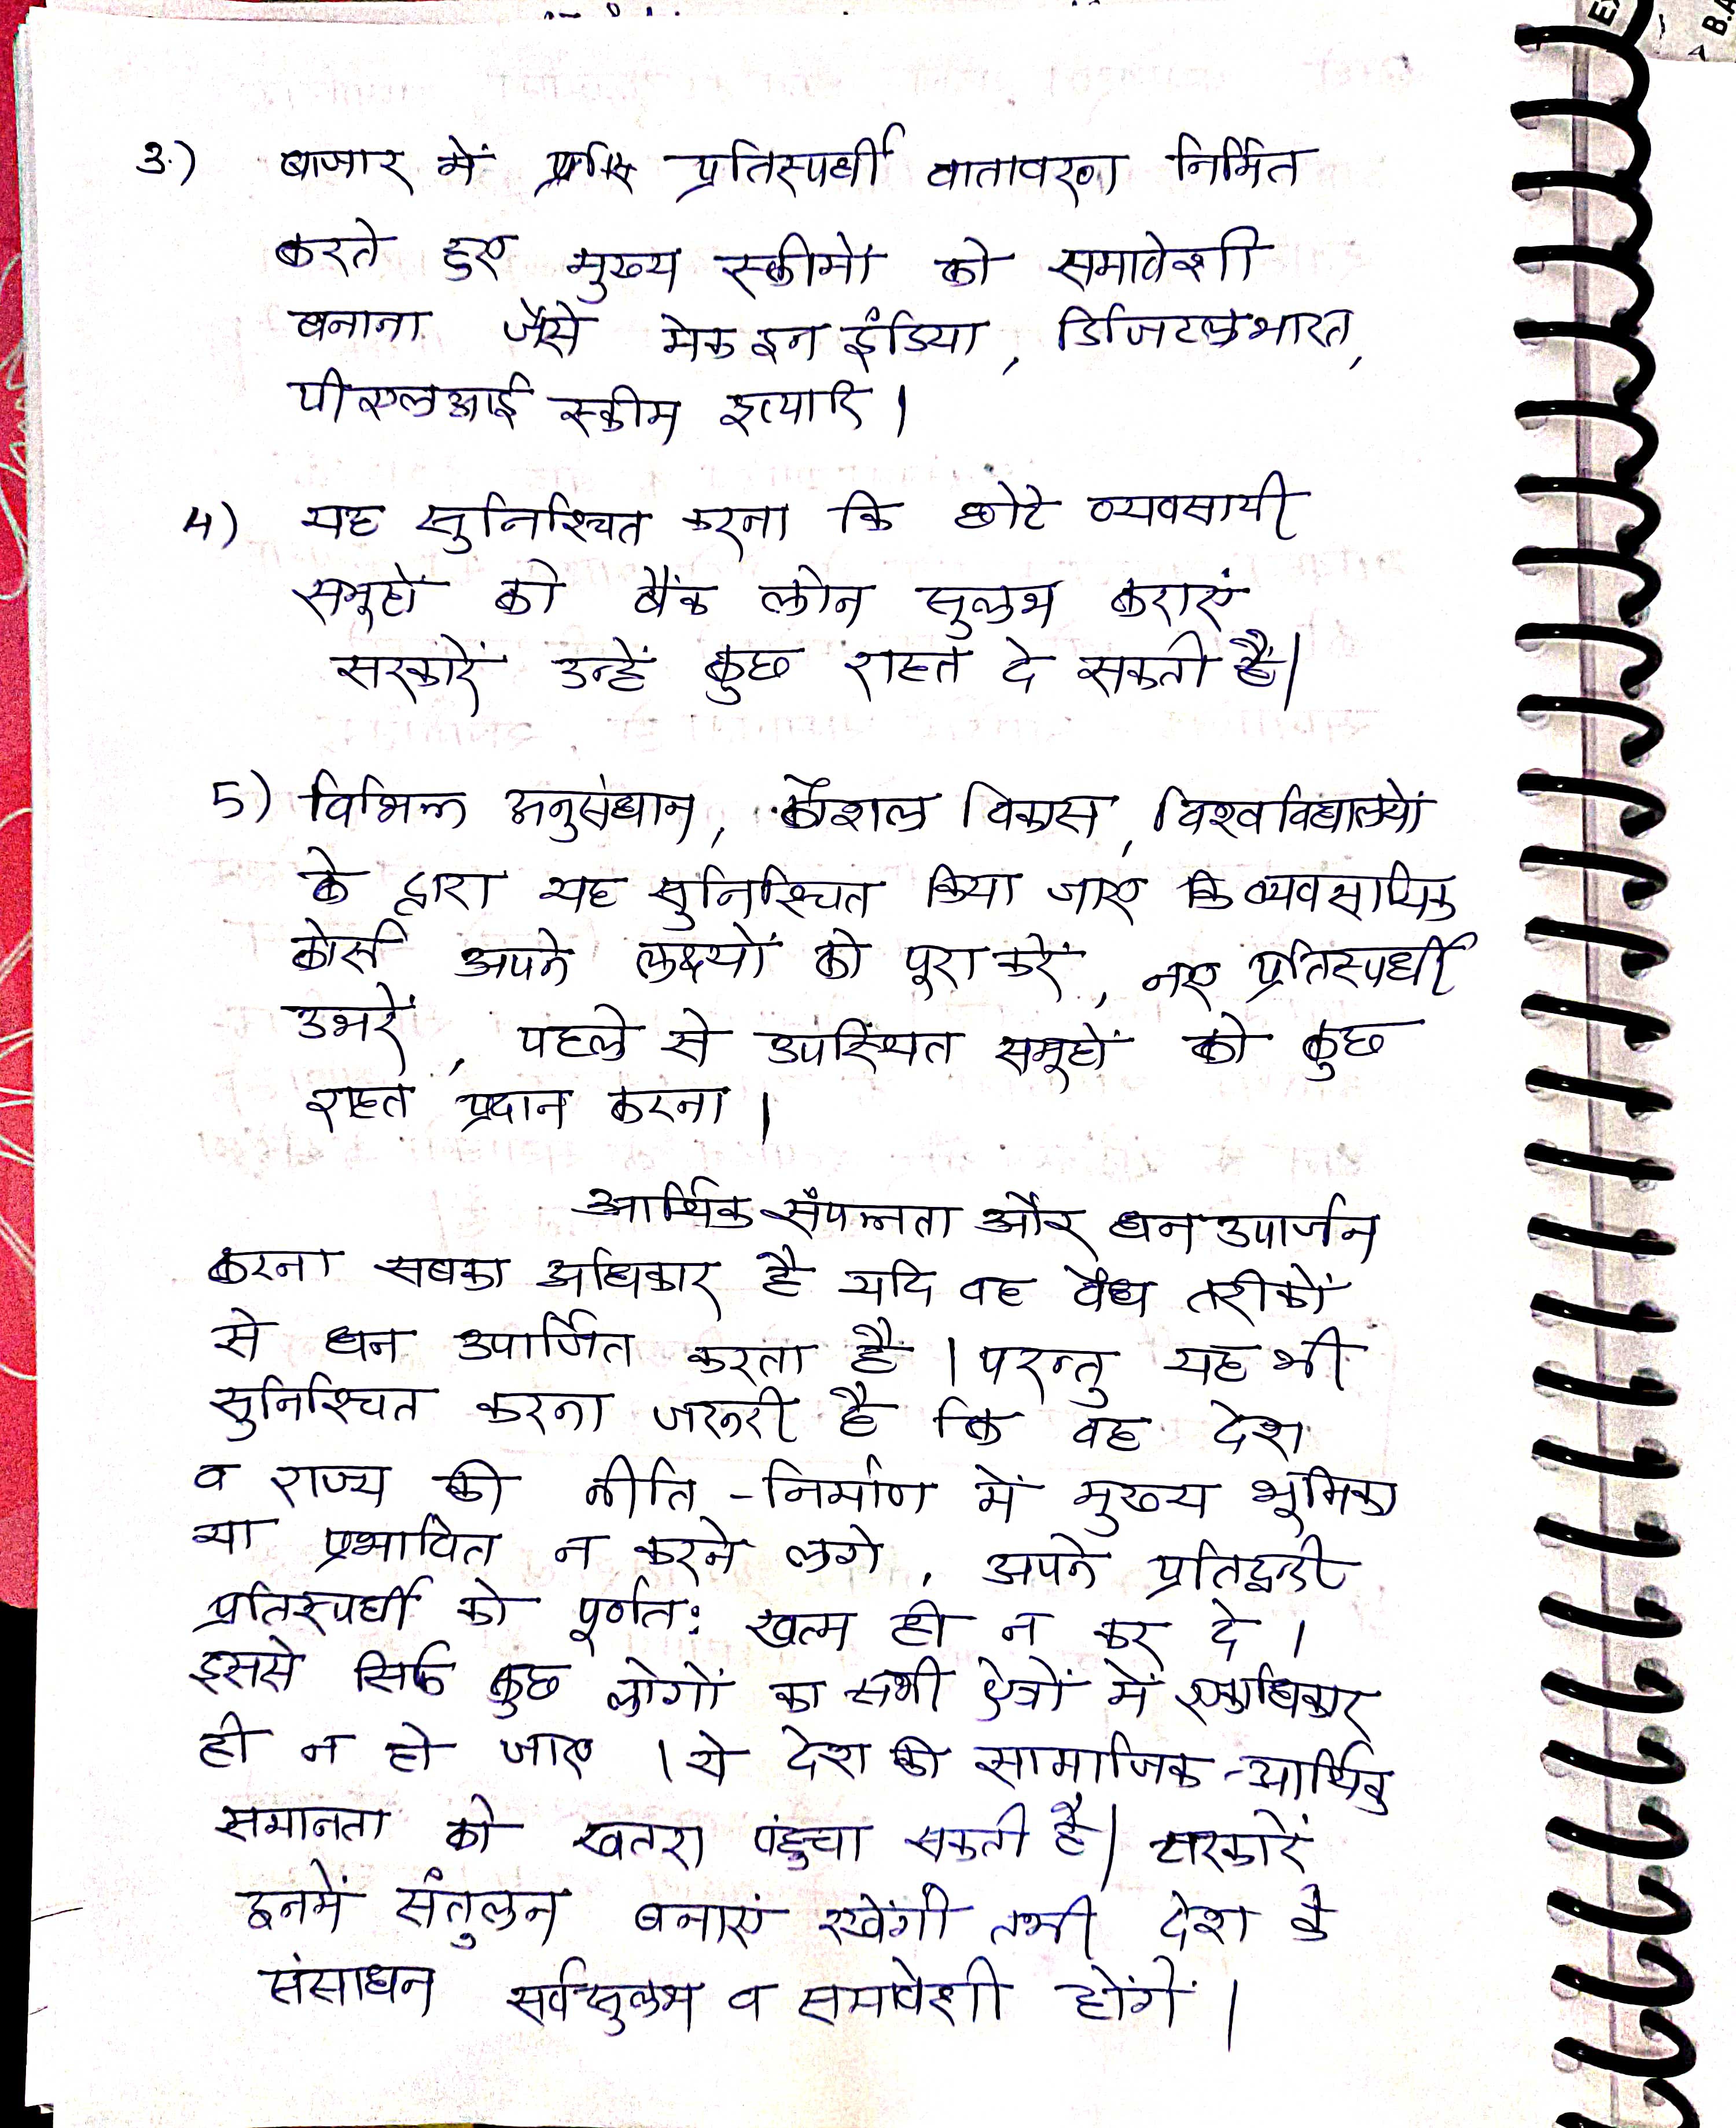 3.) बाजार में प्रतिस्पर्धी वातावरण निर्मित
करते हुए मुख्य स्कीमों को समावेशी
बनाना जैसे मेक इन इंडिया, डिजिटल भारत,
पीएलआई स्कीम इत्यादि।
4) यह सुनिश्चित करना कि छोटे व्यवसायी
समूहों को बैंक लोन सुलभ कराएं
सरकारें उन्हें कुछ राहत दे सकती हैं।
5) विभिन्न अनुसंधान, कौशल विकास, विश्वविद्यालयों
के द्वारा यह सुनिश्चित किया जाए कि व्यवसायिक
कोर्स अपने लक्ष्यों को पूरा करें, नए प्रतिस्पर्धी
उभरें, पहले से उपस्थित समूहों को कुछ
राहत प्रदान करना।
आर्थिक संपन्नता और धन उपार्जन
करना सबका अधिकार है यदि वह वैध तरीकों
से धन उपार्जित करता है। परन्तु यह भी
सुनिश्चित करना जरूरी है कि वह देश
व राज्य की नीति-निर्माण में मुख्य भूमिका
या प्रभावित न करने लगे, अपने प्रतिद्वन्दी
प्रतिस्पर्धी को पूर्णतः खत्म ही न कर दे।
इससे सिर्फ कुछ लोगों का सभी क्षेत्रों में एकाधिकार
ही न हो जाए। ये देश की सामाजिक-आर्थिक
समानता को खतरा पंहुचा सकती है। सरकारें
इनमें संतुलन बनाएं रखेंगी तभी देश के
संसाधन सर्वसुलभ व समावेशी होंगें।